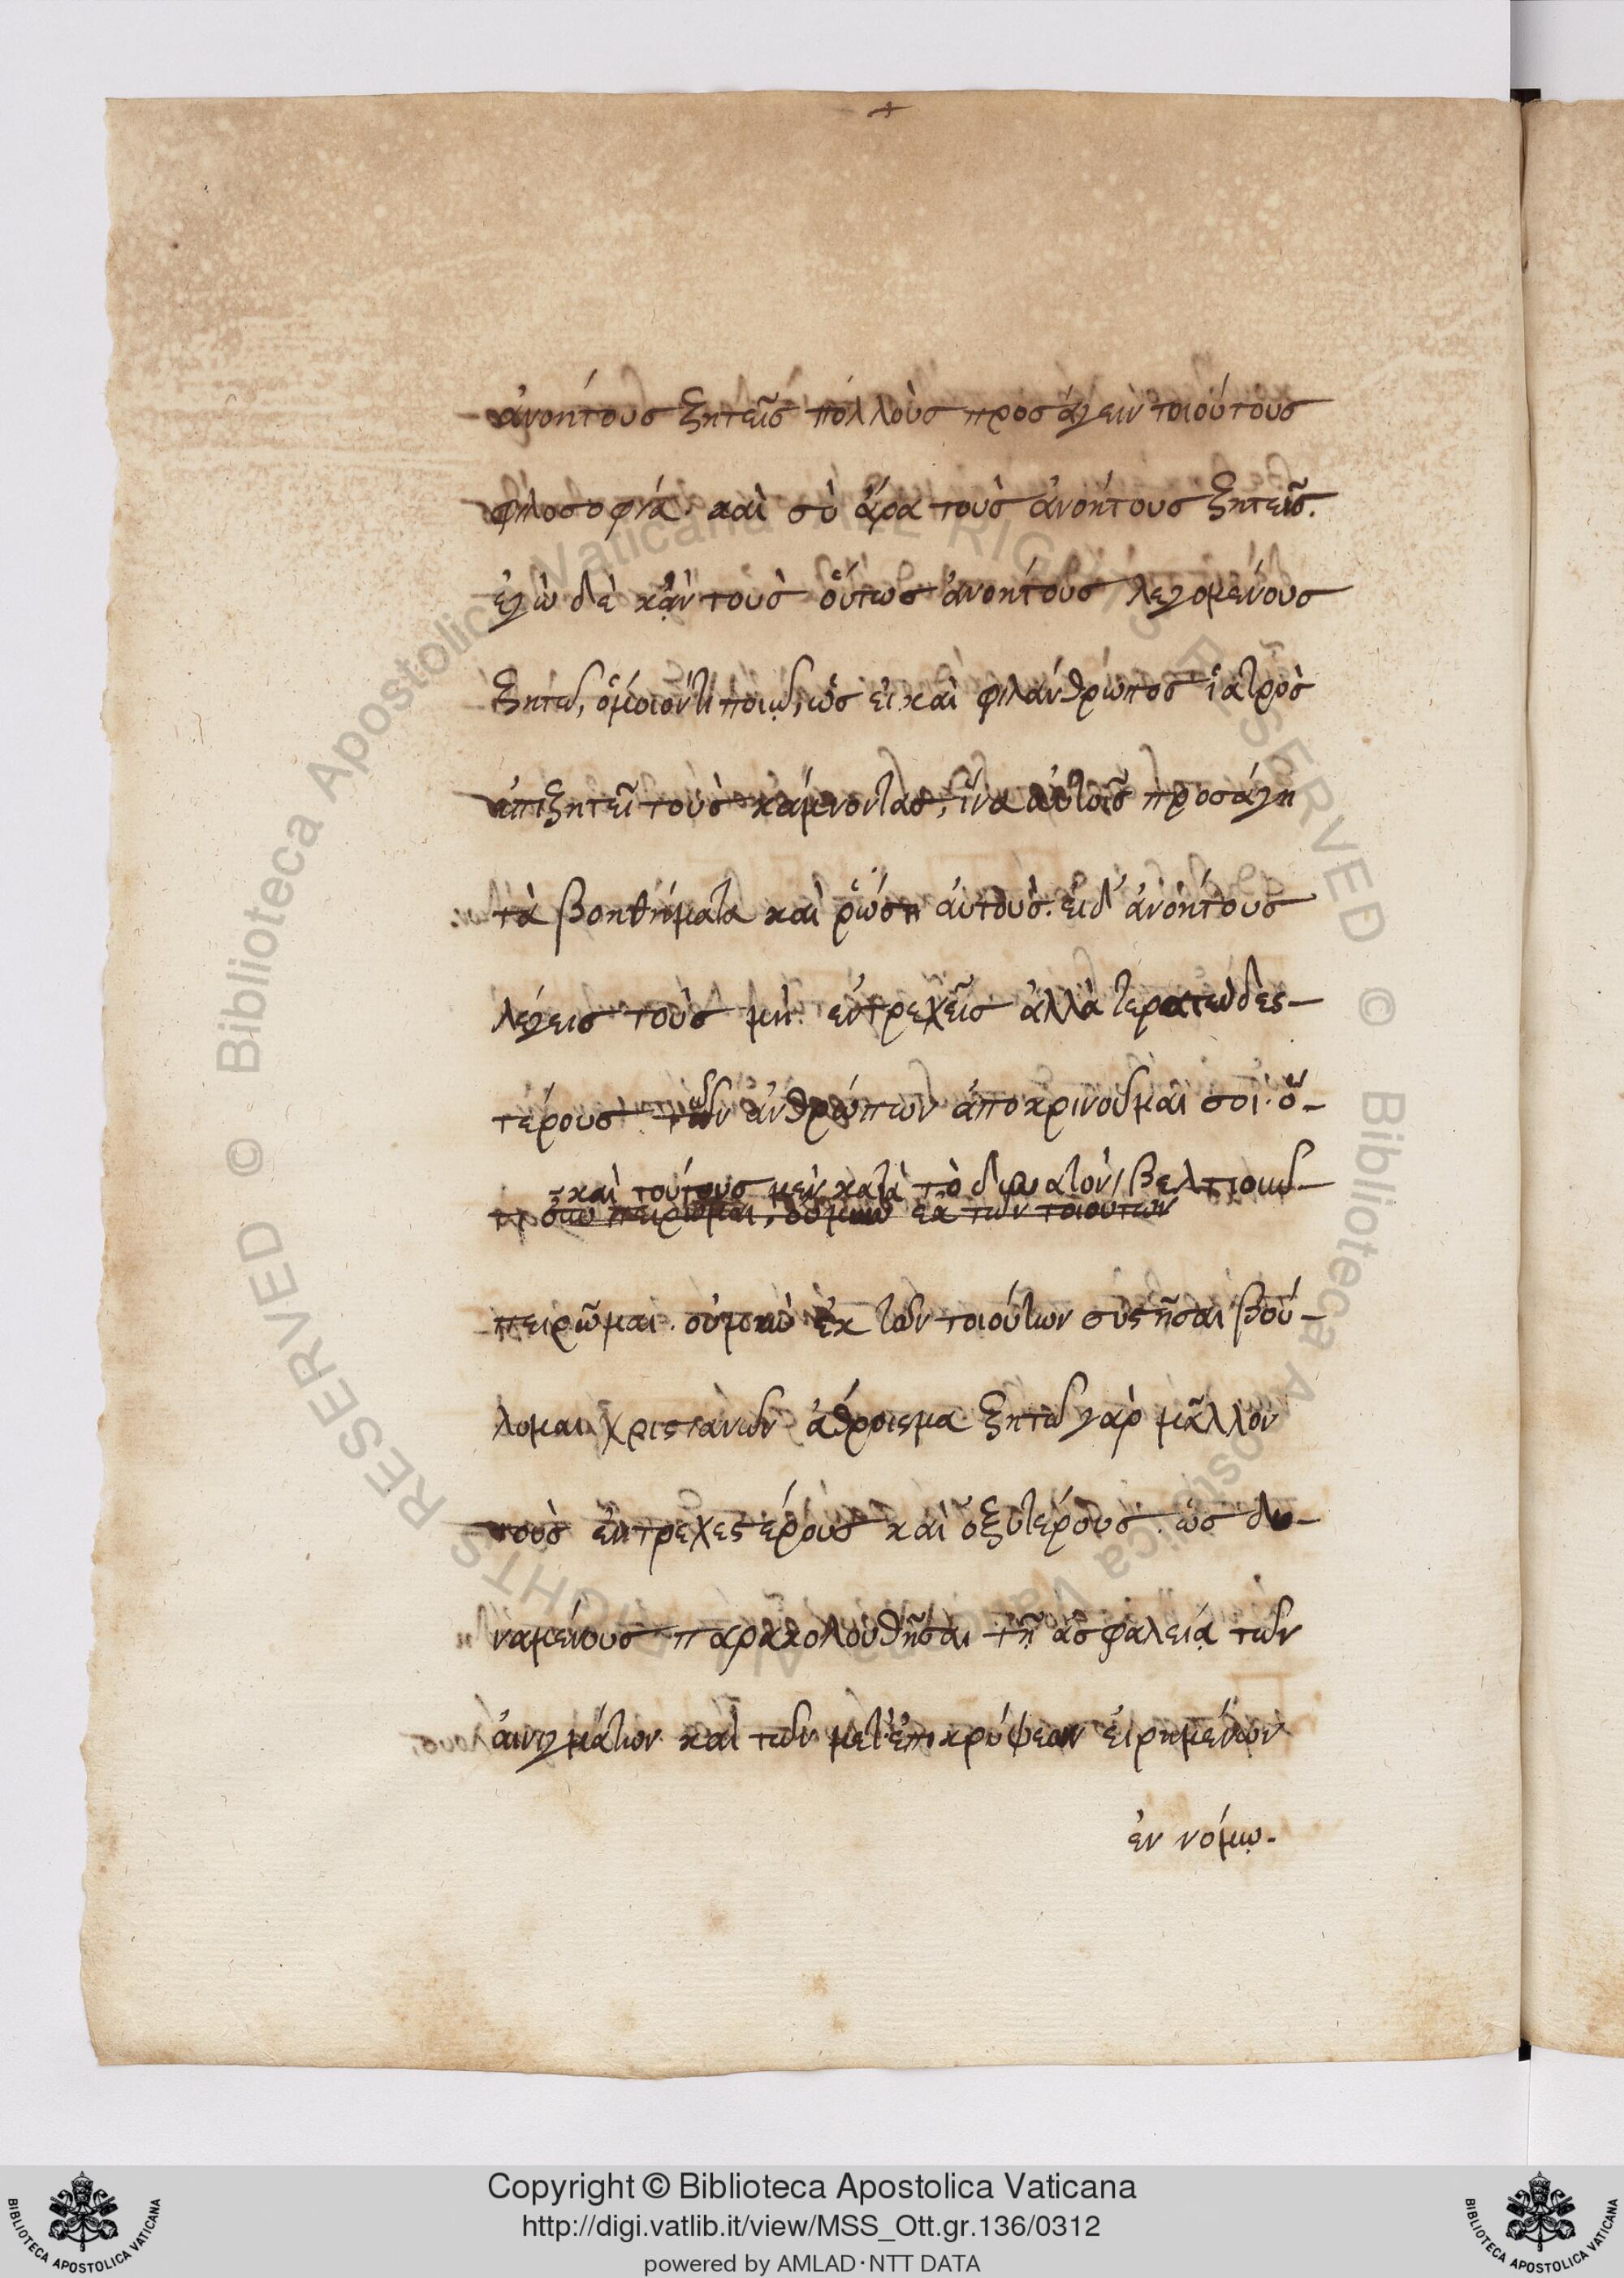 ἀνοήτους ζητεῖς πολλοὺς προσάγειν τοιούτους
φιλοσοφίᾳ. καὶ σὺ ἄρα τοὺς ἀνοήτους ζητεῖς.
ἐγὼ δὲ κᾂν τοὺς οὕτως ἀνοήτους λεγομένους
ζητῶ, ὅμοιόν τι ποιῶ, ὡς εἰ καὶ φιλάνθρωπος ἰατρὸς
ἐπιζητεῖ τοὺς κάμνοντας, ἵνα αὐτοῖς προσάγῃ
τὰ βοηθήματα καὶ ῥώσῃ αὐτούς. εἰ δ' ἀνοήτους
λέγεις τοὺς μὴ ἐντρεχεῖς ἀλλὰ τερατωδεσ-
τέρους τῶν ἀνθρώπων ἀποκρινοῦμαί σοι. ὅ-
καὶ τούτους μὲν κατὰ τὸ δυνατὸν βελτιοῦν
πειρῶμαι, οὐ μὴν ἐκ τῶν τοιούτων
πειρῶμαι. οὐ μὴν ἐκ τῶν τοιούτων συστῆσαι βού-
λομαι χριστιανῶν ἄθροισμα. ζητῶ γὰρ μᾶλλον
τοὺς ἐντρεχεστέρους καὶ ὀξυτέρους. ὡς δυ-
ναμένους παρακολουθῆσαι τῇ ἀσφαλείᾳ τῶν
αἰνιγμάτων καὶ τῶν μετ' ἐπικρύψεων εἰρημένων
ἐν νόμῳ.
Copyright © Biblioteca Apostolica Vaticana
http://digi.vatlib.it/view/MSS_Ott.gr.136/0312
powered by AMLAD·NTT DATA
BIBLIOTECA APOSTOLICA VATICANA
BIBLIOTECA APOSTOLICA VATICANA
© Biblioteca Apostolica Vaticana ALL RIGHTS RESERVED © Biblioteca Apostolica Vaticana ALL RIGHTS RESERVED